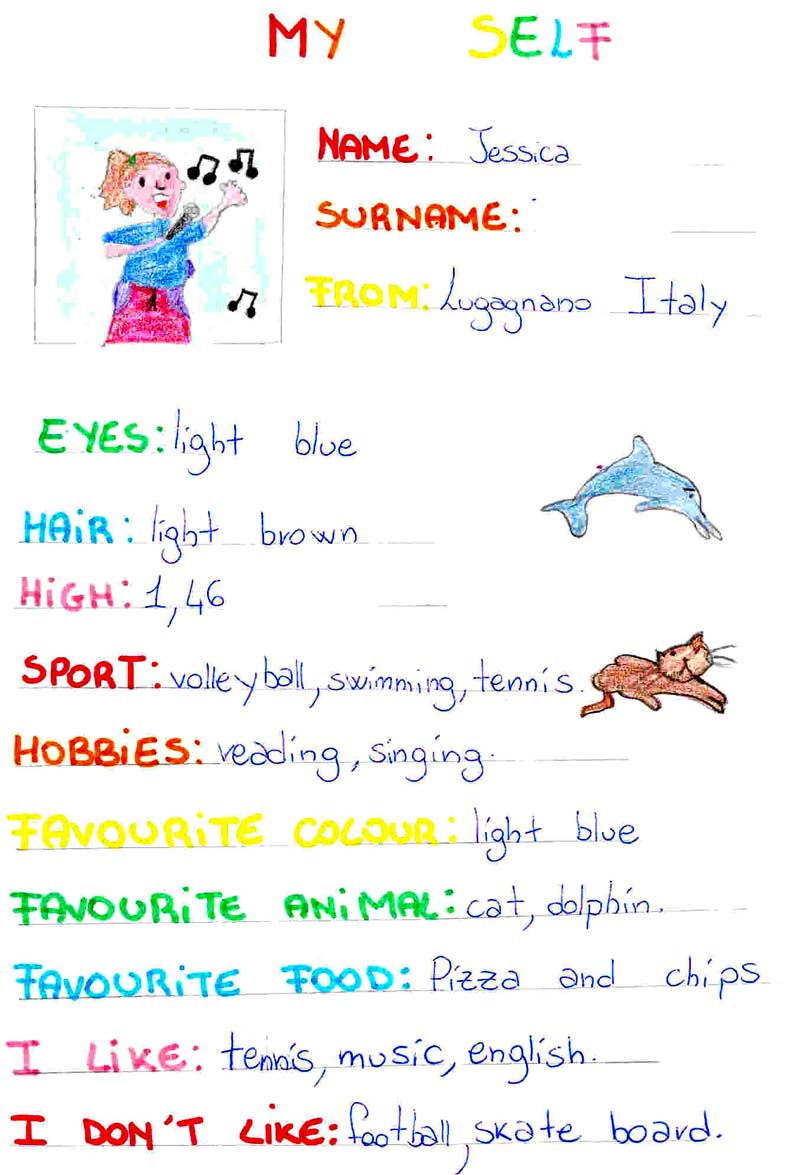 MY SELF
NAME: Jessica
SURNAME:
FROM: Lugagnano Italy
EYES: light blue
HAiR: light brown
HiGH: 1,46
SPORT: volleyball, swimming, tennis.
HOBBiES: reading, singing.
FAVOURiTE COLOUR: light blue
FAVOURiTE ANiMAL: cat, dolphin.
FAVOURiTE FOOD: Pizza and chips
I LiKE: tennis, music, english.
I DON'T LiKE: football, skate board.